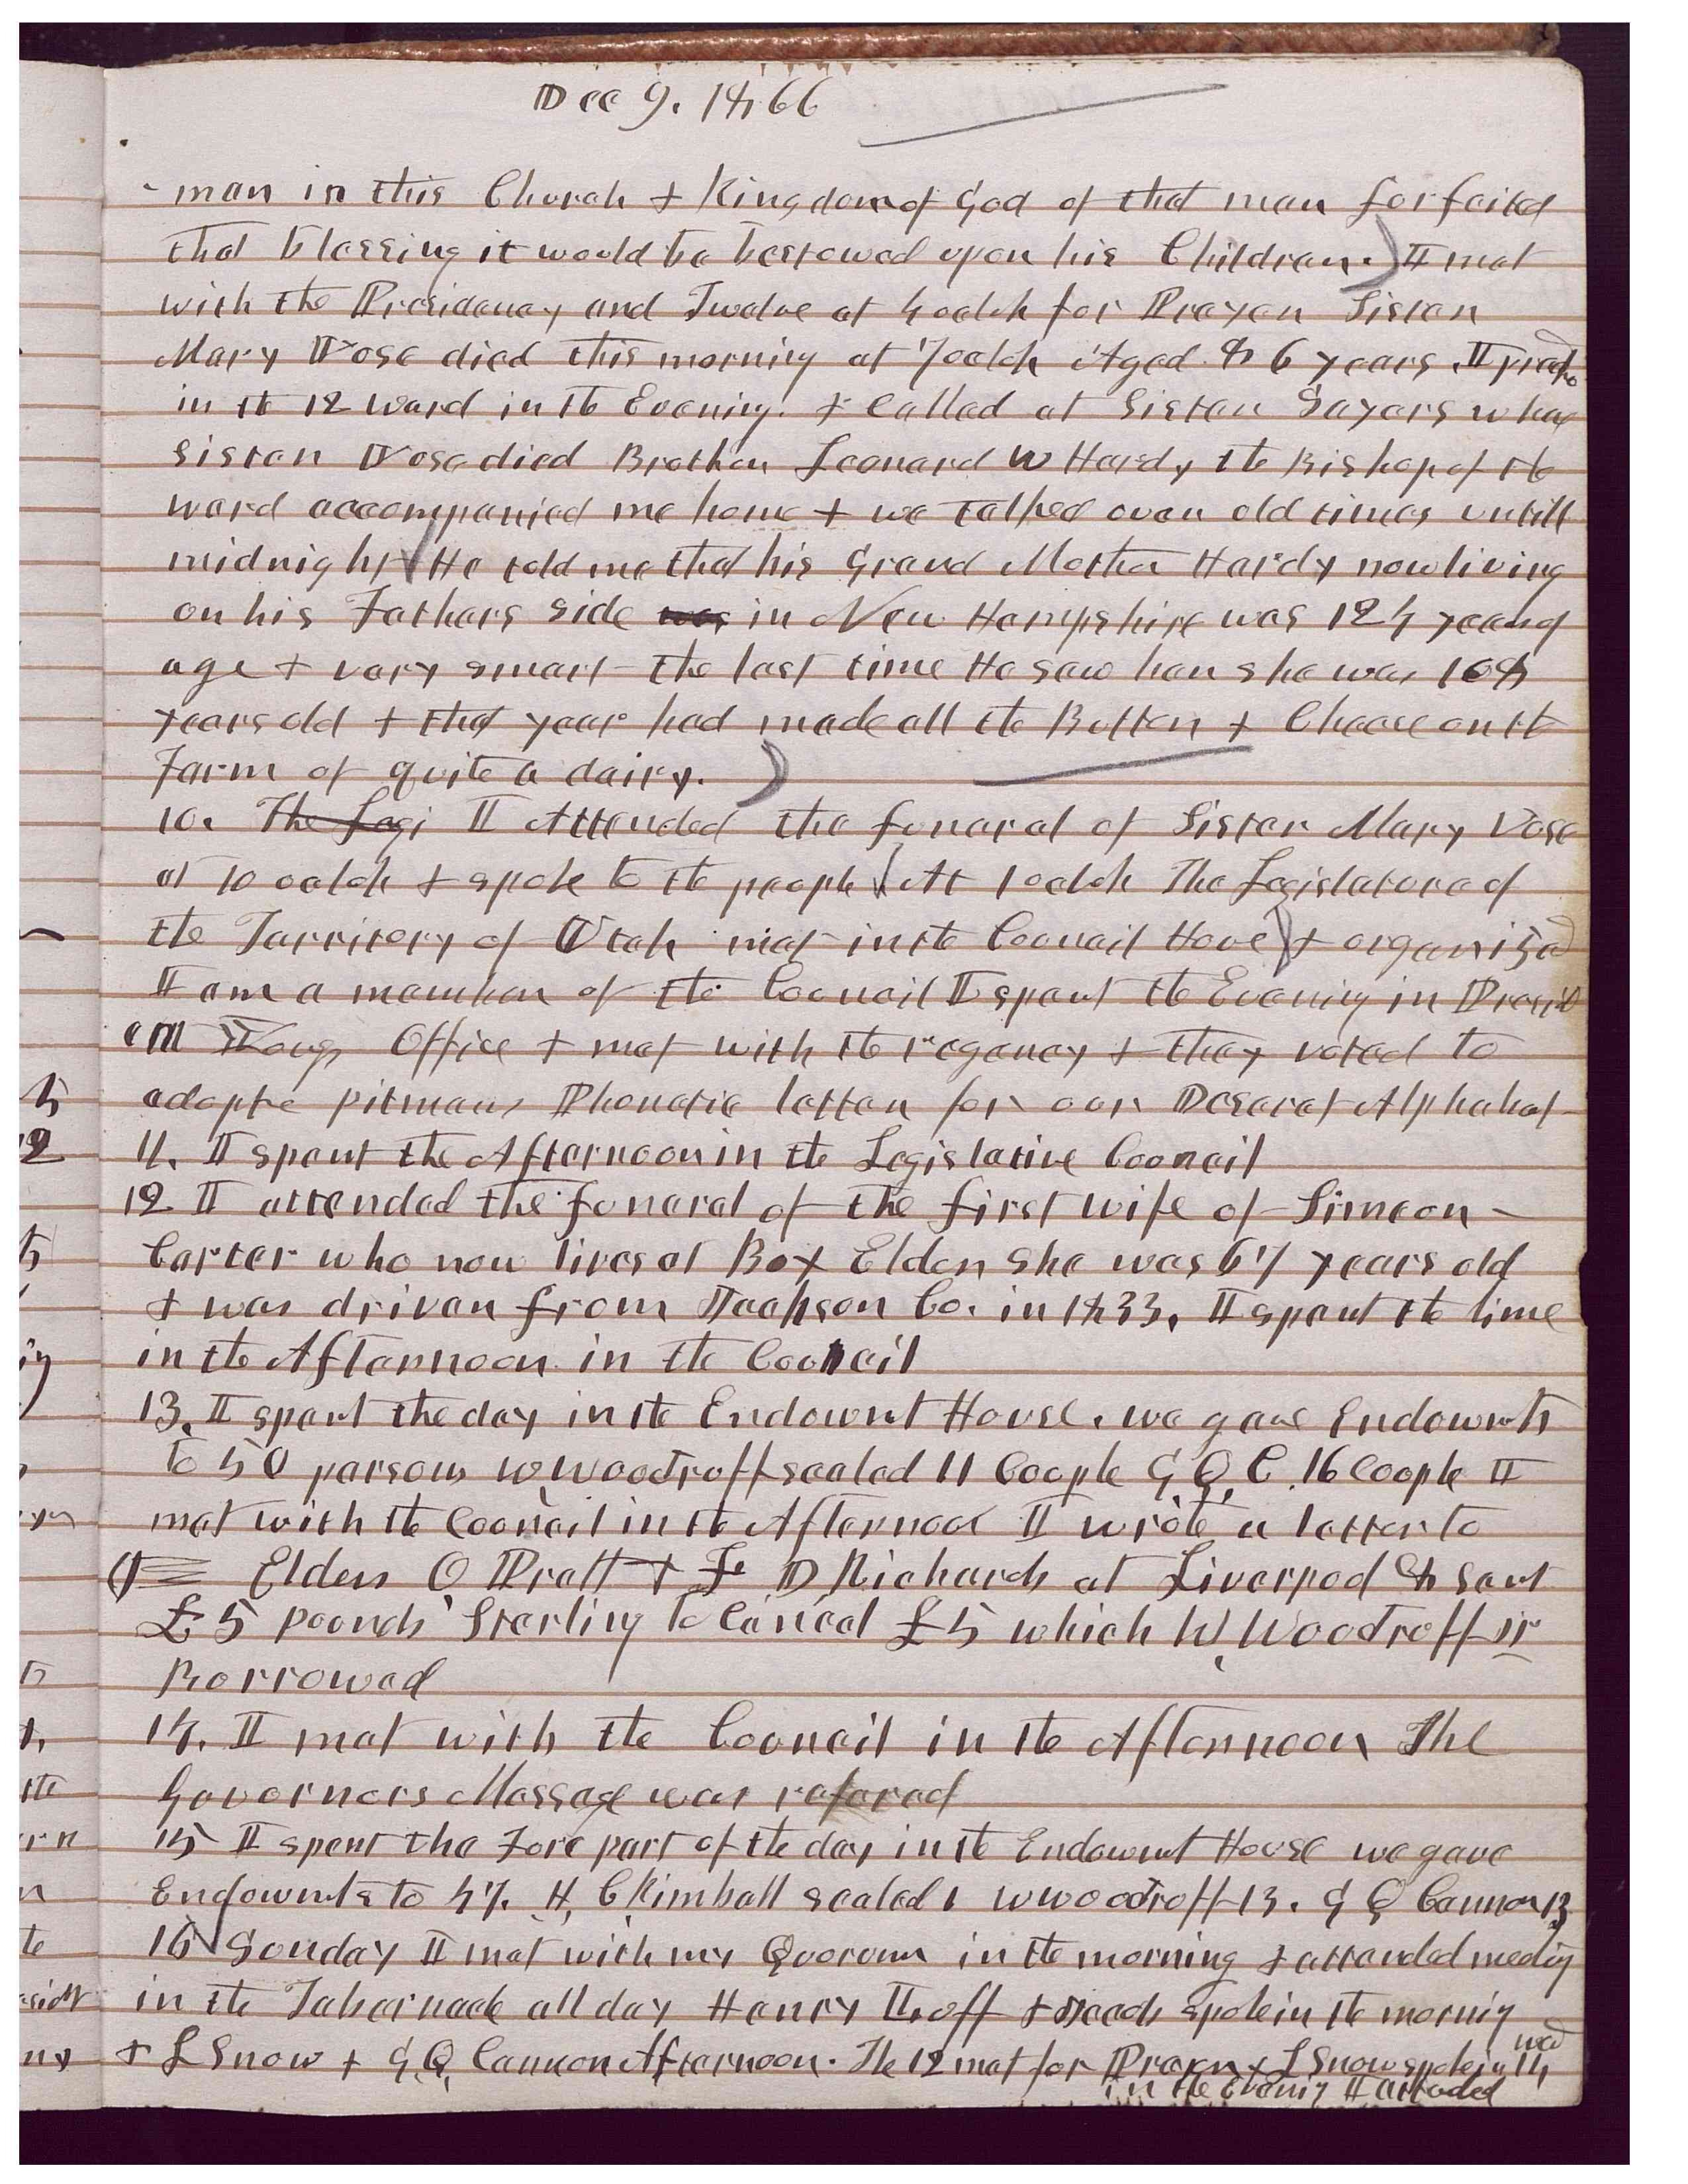 Dec 9. 1866
man in this Church & Kingdom of God if that man forfeited
that blessing it would be bestowed upon his Children. I met
with the Presidency and Twelve at 4 oclok for Prayer Sister
Mary Vose died this morning at 7 oclok Aged 86 years. I preached
in the 12 ward in the Evening. & Called at Sister Sayers whare
sister Vose died Brother Leonard W Hardy the Bishop of the
ward accompanied me home & we talked over old times untill
midnight He told me that his Grand Mother Hardy now living
on his Fathers side was in New Hampshire was 124 years of
age & very smart the last time He saw her she was 108
years old & that year had made all the Butter & Cheese on the
Farm of quite a dairy.
10. The Legi I Attended the funeral of Sister Mary Vose
at 10 oclok & spoke to the people At 1 oclok The Legislature of
the Territory of Utah met in the Council House & organized
I am a member of the Council I spent the Evening in Presid
ent Youngs Office & met with the regency & they voted to
adopte pitmans Phonetic letter for our Deseret Alphabet
11. I spent the Afternoon in the Legislative Council
12 I attended the funeral of the first wife of Simeon
Carter who now lives at Box Elder She was 67 years old
& was driven from Jackson Co. in 1833. I spent the time
in the Afternoon in the Council
13. I spent the day in the Endowmt House. we gave Endowmts
to 50 persons W. Woodruff sealed 11 Couple G. Q. C. 16 Couple I
met with the Council in the Afternoon I wrote a letter to
Elders O Pratt & F D Richards at Liverpool & sent
£5 pounds Sterling to Cancel £5 which W. Woodruff jr
Borrowed
14. I met with the Council in the Afternoon The
Governors Message was refered
15 I spent the Fore part of the day in the Endowmt House we gave
Endowmts to 47. H. C Kimball sealed 1 W Woodruff 13. G Q Cannon 13
16 Sunday I met with my Quorum in the morning & attended meeting
in the Tabernacle all day Henry spoke in the morning
& L Snow & G. Q. Cannon Afternoon. The 12 met for Prayer & L Snow spoke in 14 wd
in the Evening I attended
5
2